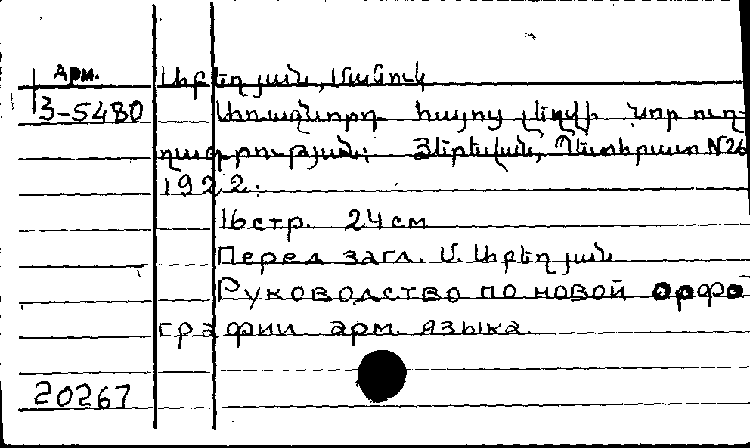 Арм.
Աբեղյան, Մանուկ
3-5480
Առաջնորդ հայոց լեզվի նոր ուղ-
ղագրության: Յերեվան, Պետհրատ N26
1922:
16 стр. 24 см
Перед загл. Մ. Աբեղյան
Руководство по новой орфо
графии арм. языка.
20267